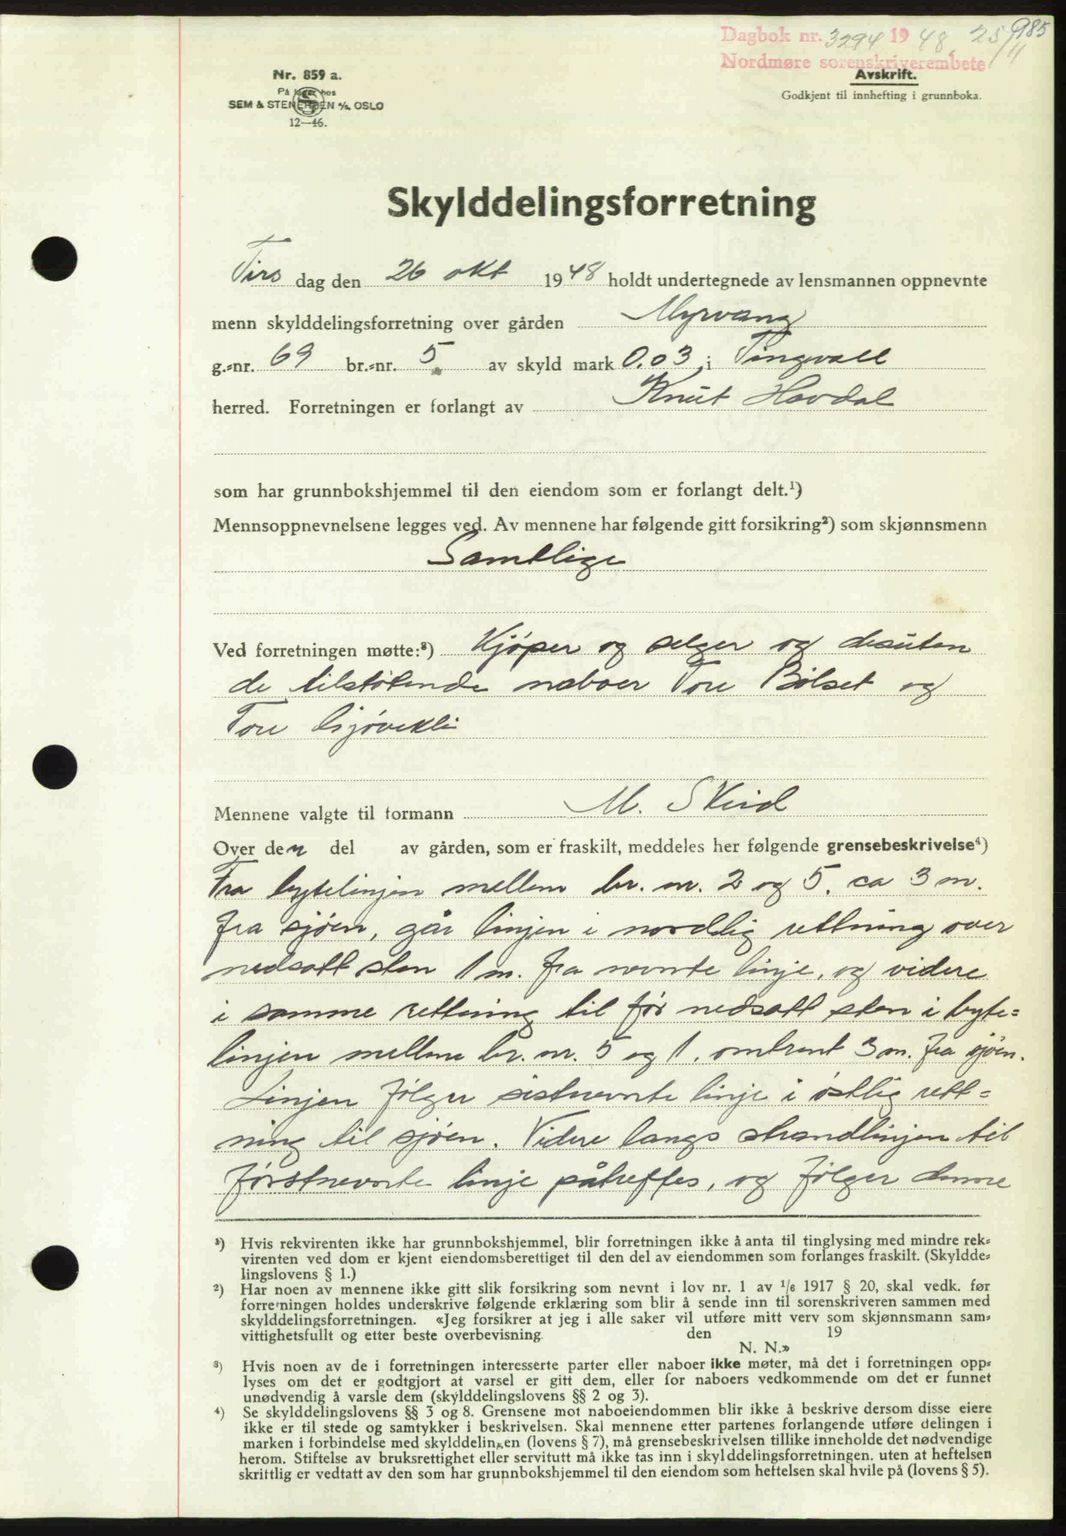 985
Dagbok nr. 3294 1948 25/11
Nordmøre sorenskriverembete
Nr. 859 a.
På lager hos
SEM & STENERSEN A/S, OSLO
12—46.
Avskrift.
Godkjent til innhefting i grunnboka.
Skylddelingsforretning
Tirs dag den 26 okt 1948 holdt undertegnede av lensmannen oppnevnte
menn skylddelingsforretning over gården Myrvang
g.-nr. 69 br.-nr. 5. av skyld mark 0.03 i Tingvoll
herred. Forretningen er forlangt av Knut Hovdal
som har grunnbokshjemmel til den eiendom som er forlangt delt.¹)
Mennsoppnevnelsene legges ved. Av mennene har følgende gitt forsikring²) som skjønnsmenn
Samtlige
Ved forretningen møtte:³) Kjøper og selger og desuten
de tilstøtende naboer Tore Bølset og
Tore
Mennene valgte til formann M. Skeid
Over den del av gården, som er fraskilt, meddeles her følgende grensebeskrivelse⁴)
Fra bytelinjen mellem br. nr. 2 og 5, ca 3 m.
fra sjøen, går linjen i nordlig rettning over
nedsatt sten 1 m. fra nevnte linje, og videre
i samme rettning til før nedsatt sten i byte=
linjen mellem br. nr. 5 og 1, omtrent 3 m. fra sjøen.
Linjen følger sistnevnte linje i østlig rett=
ning til sjøen. Videre langs strandlinjen til
førstnevnte linje påtreffes, og følger denne
¹) Hvis rekvirenten ikke har grunnbokshjemmel, blir forretningen ikke å anta til tinglysing med mindre rek-
virenten ved dom er kjent eiendomsberettiget til den del av eiendommen som forlanges fraskilt. (Skyldde-
lingslovens § 1.)
²) Har noen av mennene ikke gitt slik forsikring som nevnt i lov nr. 1 av 1/6 1917 § 20, skal vedk. før
forretningen holdes underskrive følgende erklæring som blir å sende inn til sorenskriveren sammen med
skylddelingsforretningen. «Jeg forsikrer at jeg i alle saker vil utføre mitt verv som skjønnsmann sam-
vittighetsfullt og etter beste overbevisning. den 19
N. N.»
³) Hvis noen av de i forretningen interesserte parter eller naboer ikke møter, må det i forretningen opp-
lyses om det er godtgjort at varsel er gitt dem, eller for naboers vedkommende om det er funnet
unødvendig å varsle dem (skylddelingslovens §§ 2 og 3).
⁴) Se skylddelingslovens §§ 3 og 8. Grensene mot naboeiendommen blir ikke å beskrive dersom disse eiere
ikke er til stede og samtykker i beskrivelsen. Skal mennene etter partenes forlangende utføre delingen i
marken i forbindelse med skylddelingen (lovens § 7), må grensebeskrivelsen tillike inneholde det nødvendige
herom. Stiftelse av bruksrettighet eller servitutt må ikke tas inn i skylddelingsforretningen. uten at heftelsen
skrittlig er vedtatt av den som har grunnbokshjemmel til den eiendom som heftelsen skal hvile på (lovens § 5).